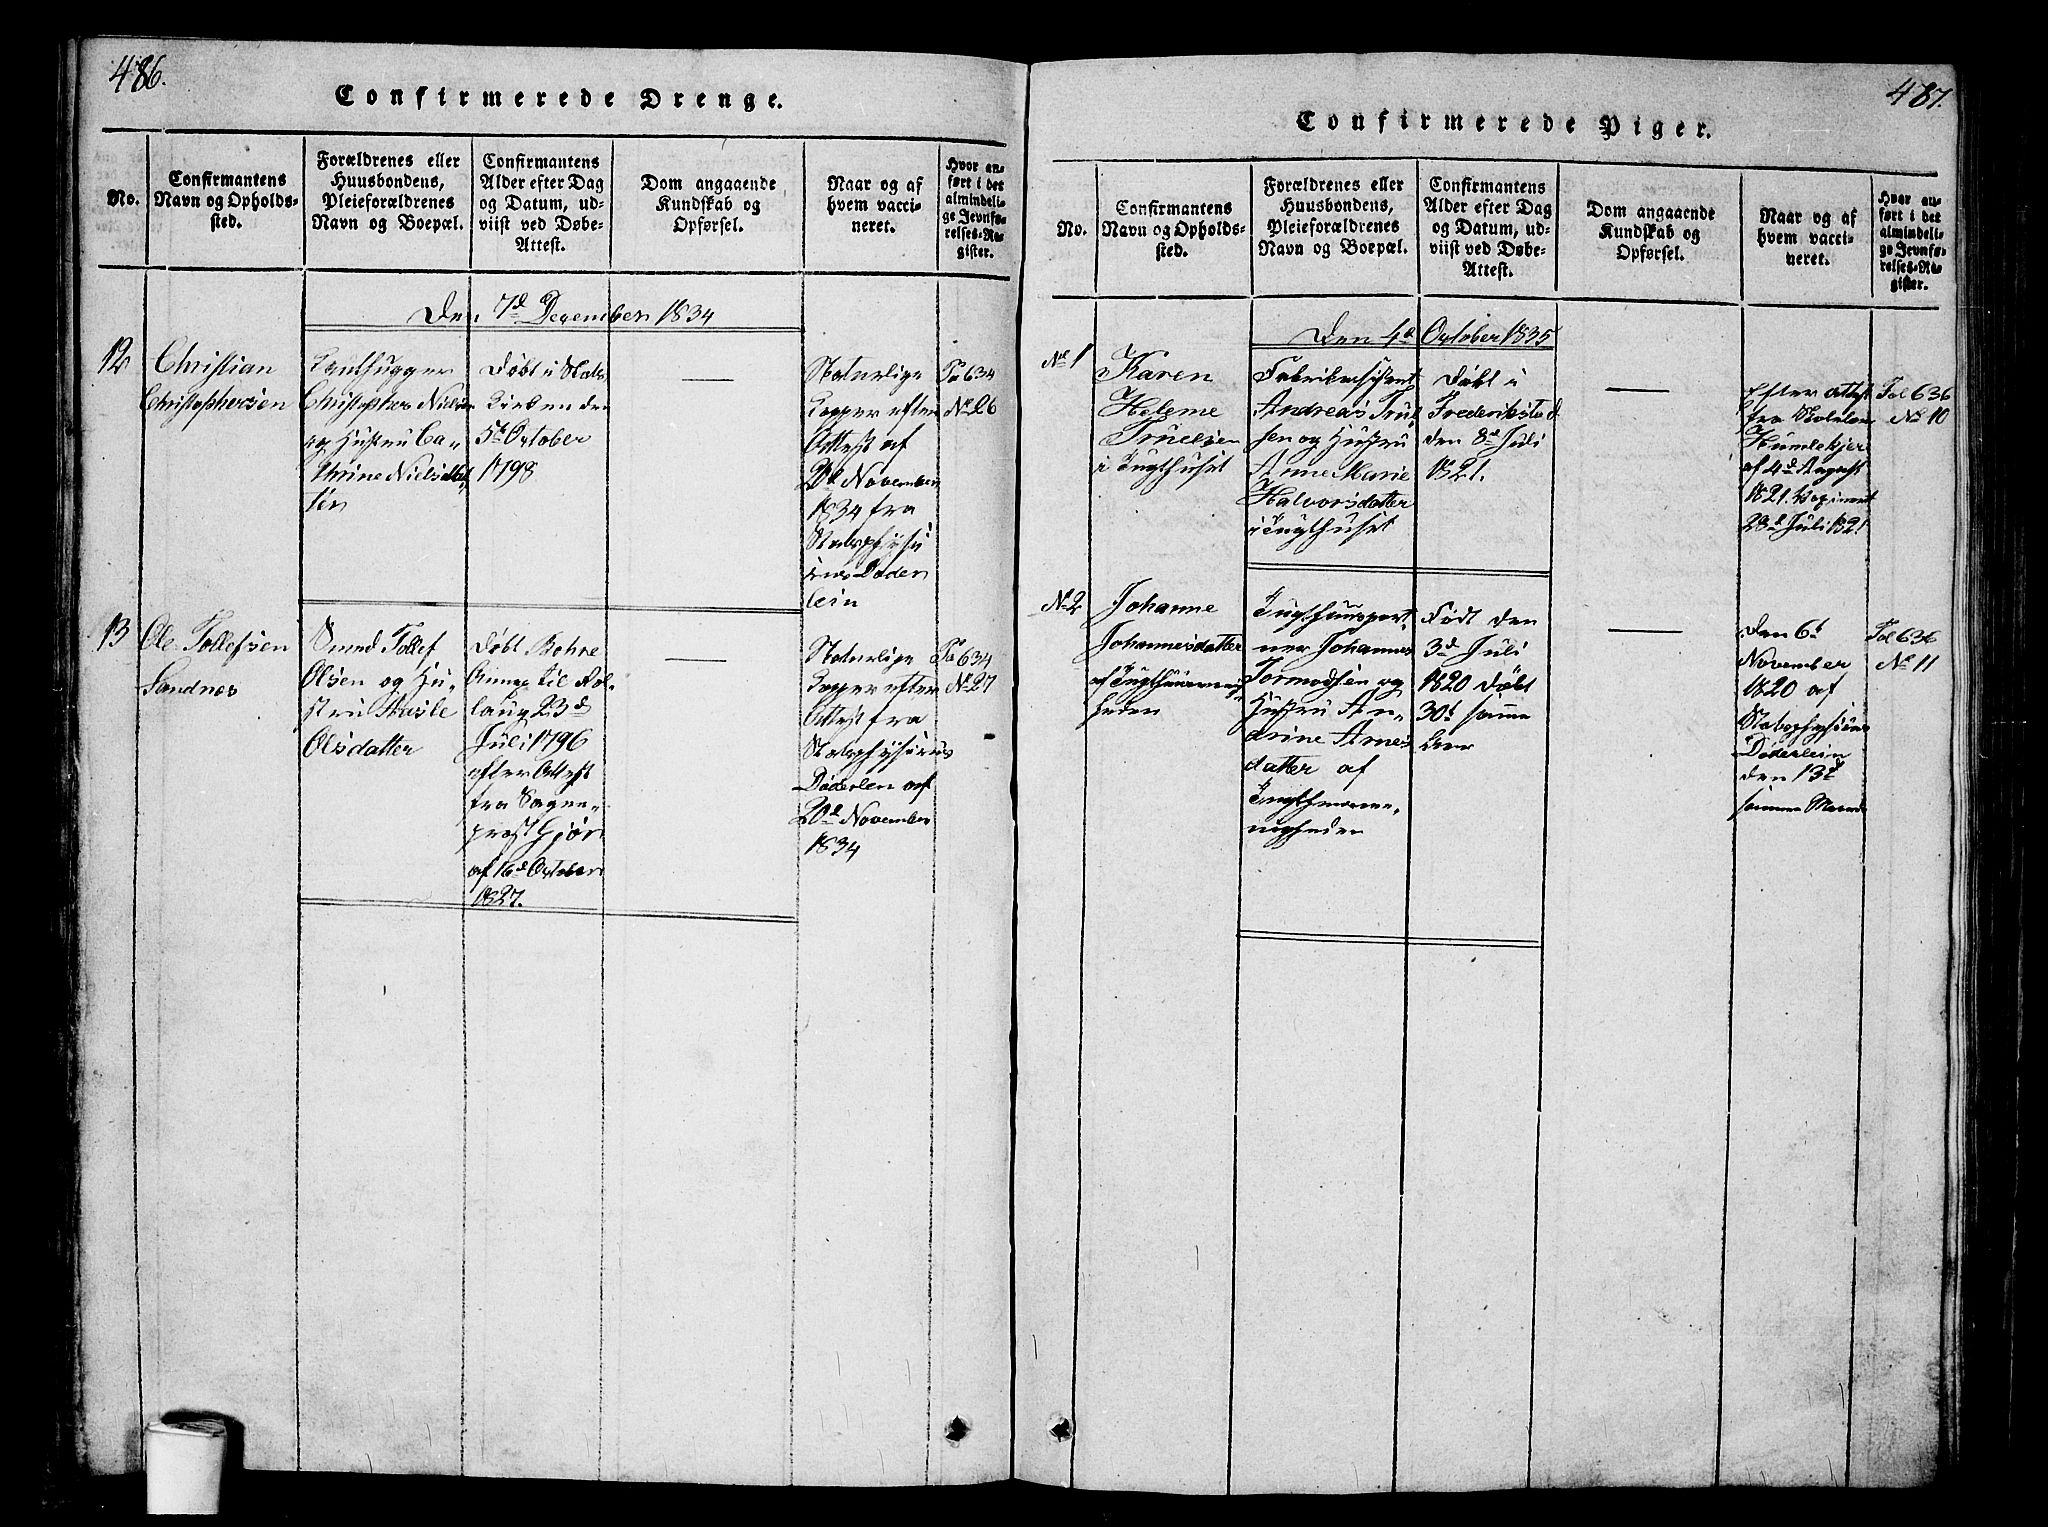 486.
Confirmerede Drenge.
No.
Confirmantens
Navn og Opholds-
sted.
Forældrenes eller
Huusbondens,
Pleieforældrenes
Navn og Boepæl.
Confirmantens
Alder efter Dag
og Datum, ud-
viist ved Døbe-
Attest.
Dom angaaende
Kundskab og
Opførsel.
Naar og af
hvem vacci-
neret.
Hvor an-
ført i det
almindeli-
ge Jevnfø-
relses-Re-
gister.
Den 7d December 1834
12
Christian
Christophersen
Christopher Nielsen
og Hustru Ca-
thrine Nielsdat-
ter
Døbt i
Kirken den
5t October
1798
—
Naturlige
Kopper efter
Attest af
20d November
1834 fra
Statsphysi
cus Døder
lein
Fo 634
No 26
13
Ole Tollefsen
Sandnes
Tollef
Olsen og Hu-
stru
Olsdatter
Døbt
til
23d
Juli 1796
efter Attest
fra Sogne-
prost
af 16d October
1827.
—
Naturlige
Kopper efter
Attest fra
Statsphysicus
Døderlen af
20d November
1834
Fo 634
No 27
487.
Confirmerede Piger.
No.
Confirmantens
Navn og Opholds-
sted.
Forældrenes eller
Huusbondens,
Pleieforældrenes
Navn og Boepæl.
Confirmantens
Alder efter Dag
og Datum, ud-
viist ved Døbe-
Attest.
Dom angaaende
Kundskab og
Opførsel.
Naar og af
hvem vacci-
neret.
Hvor an-
ført i det
almindeli-
ge Jevnfø-
relses-Re-
gister.
Den 4d October 1835
No 1
Karen
Helene
Truelsen
i Tugthuset
Andreas Trul-
sen og Hustru
Anne Marie
Halvorsdatter
i Tugthuset
Døbt i
Frederikstad
den 8d Juli
1821.
—
Efter Attest
fra
Humlekjer
af 4d August
1821. Vaccineret
28d Juli 1821
Fol 636
No 10
No 2
Johanne
Johannesdatter
af Tugthuusmenig-
heden
Tugthuusport-
ner Johannes
Tormodsen og
Hustru An-
drine Arnes
datter af
Tugthuusme-
nigheden
Født den
3d Juli
1820 Døbt
30t samme
Aar
—
Den 6t
November
1820 af
Statsphysicus
Døderlein
den 13d
samme Maaned
Fol 636
No 11